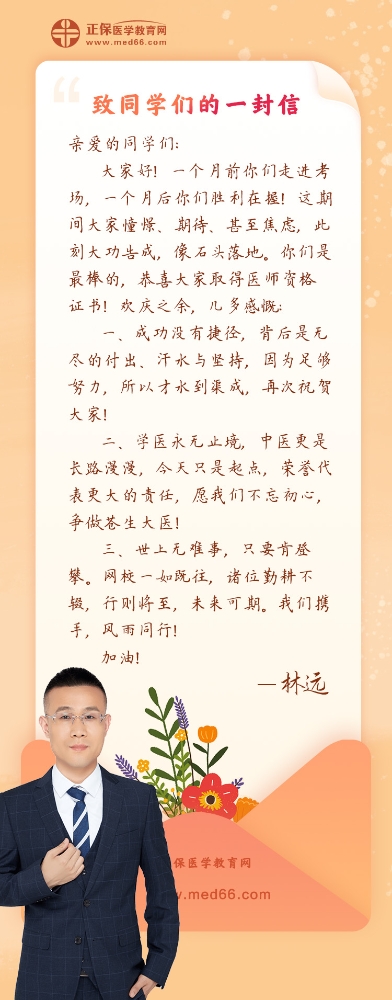 正保医学教育网
www.med66.com
致同学们的一封信
亲爱的同学们：
大家好！一个月前你们走进考
场，一个月后你们胜利在握！这期
间大家憧憬、期待、甚至焦虑，此
刻大功告成，像石头落地。你们是
最棒的，恭喜大家取得医师资格
证书！欢庆之余，几多感慨：
一、成功没有捷径，背后是无
尽的付出、汗水与坚持，因为足够
努力，所以才水到渠成，再次祝贺
大家！
二、学医永无止境，中医更是
长路漫漫，今天只是起点，荣誉代
表更大的责任，愿我们不忘初心，
争做苍生大医！
三、世上无难事，只要肯登
攀。网校一如既往，诸位勤耕不
辍，行则将至，未来可期。我们携
手，风雨同行！
加油！
—林远
保医学教育网
www.med66.com